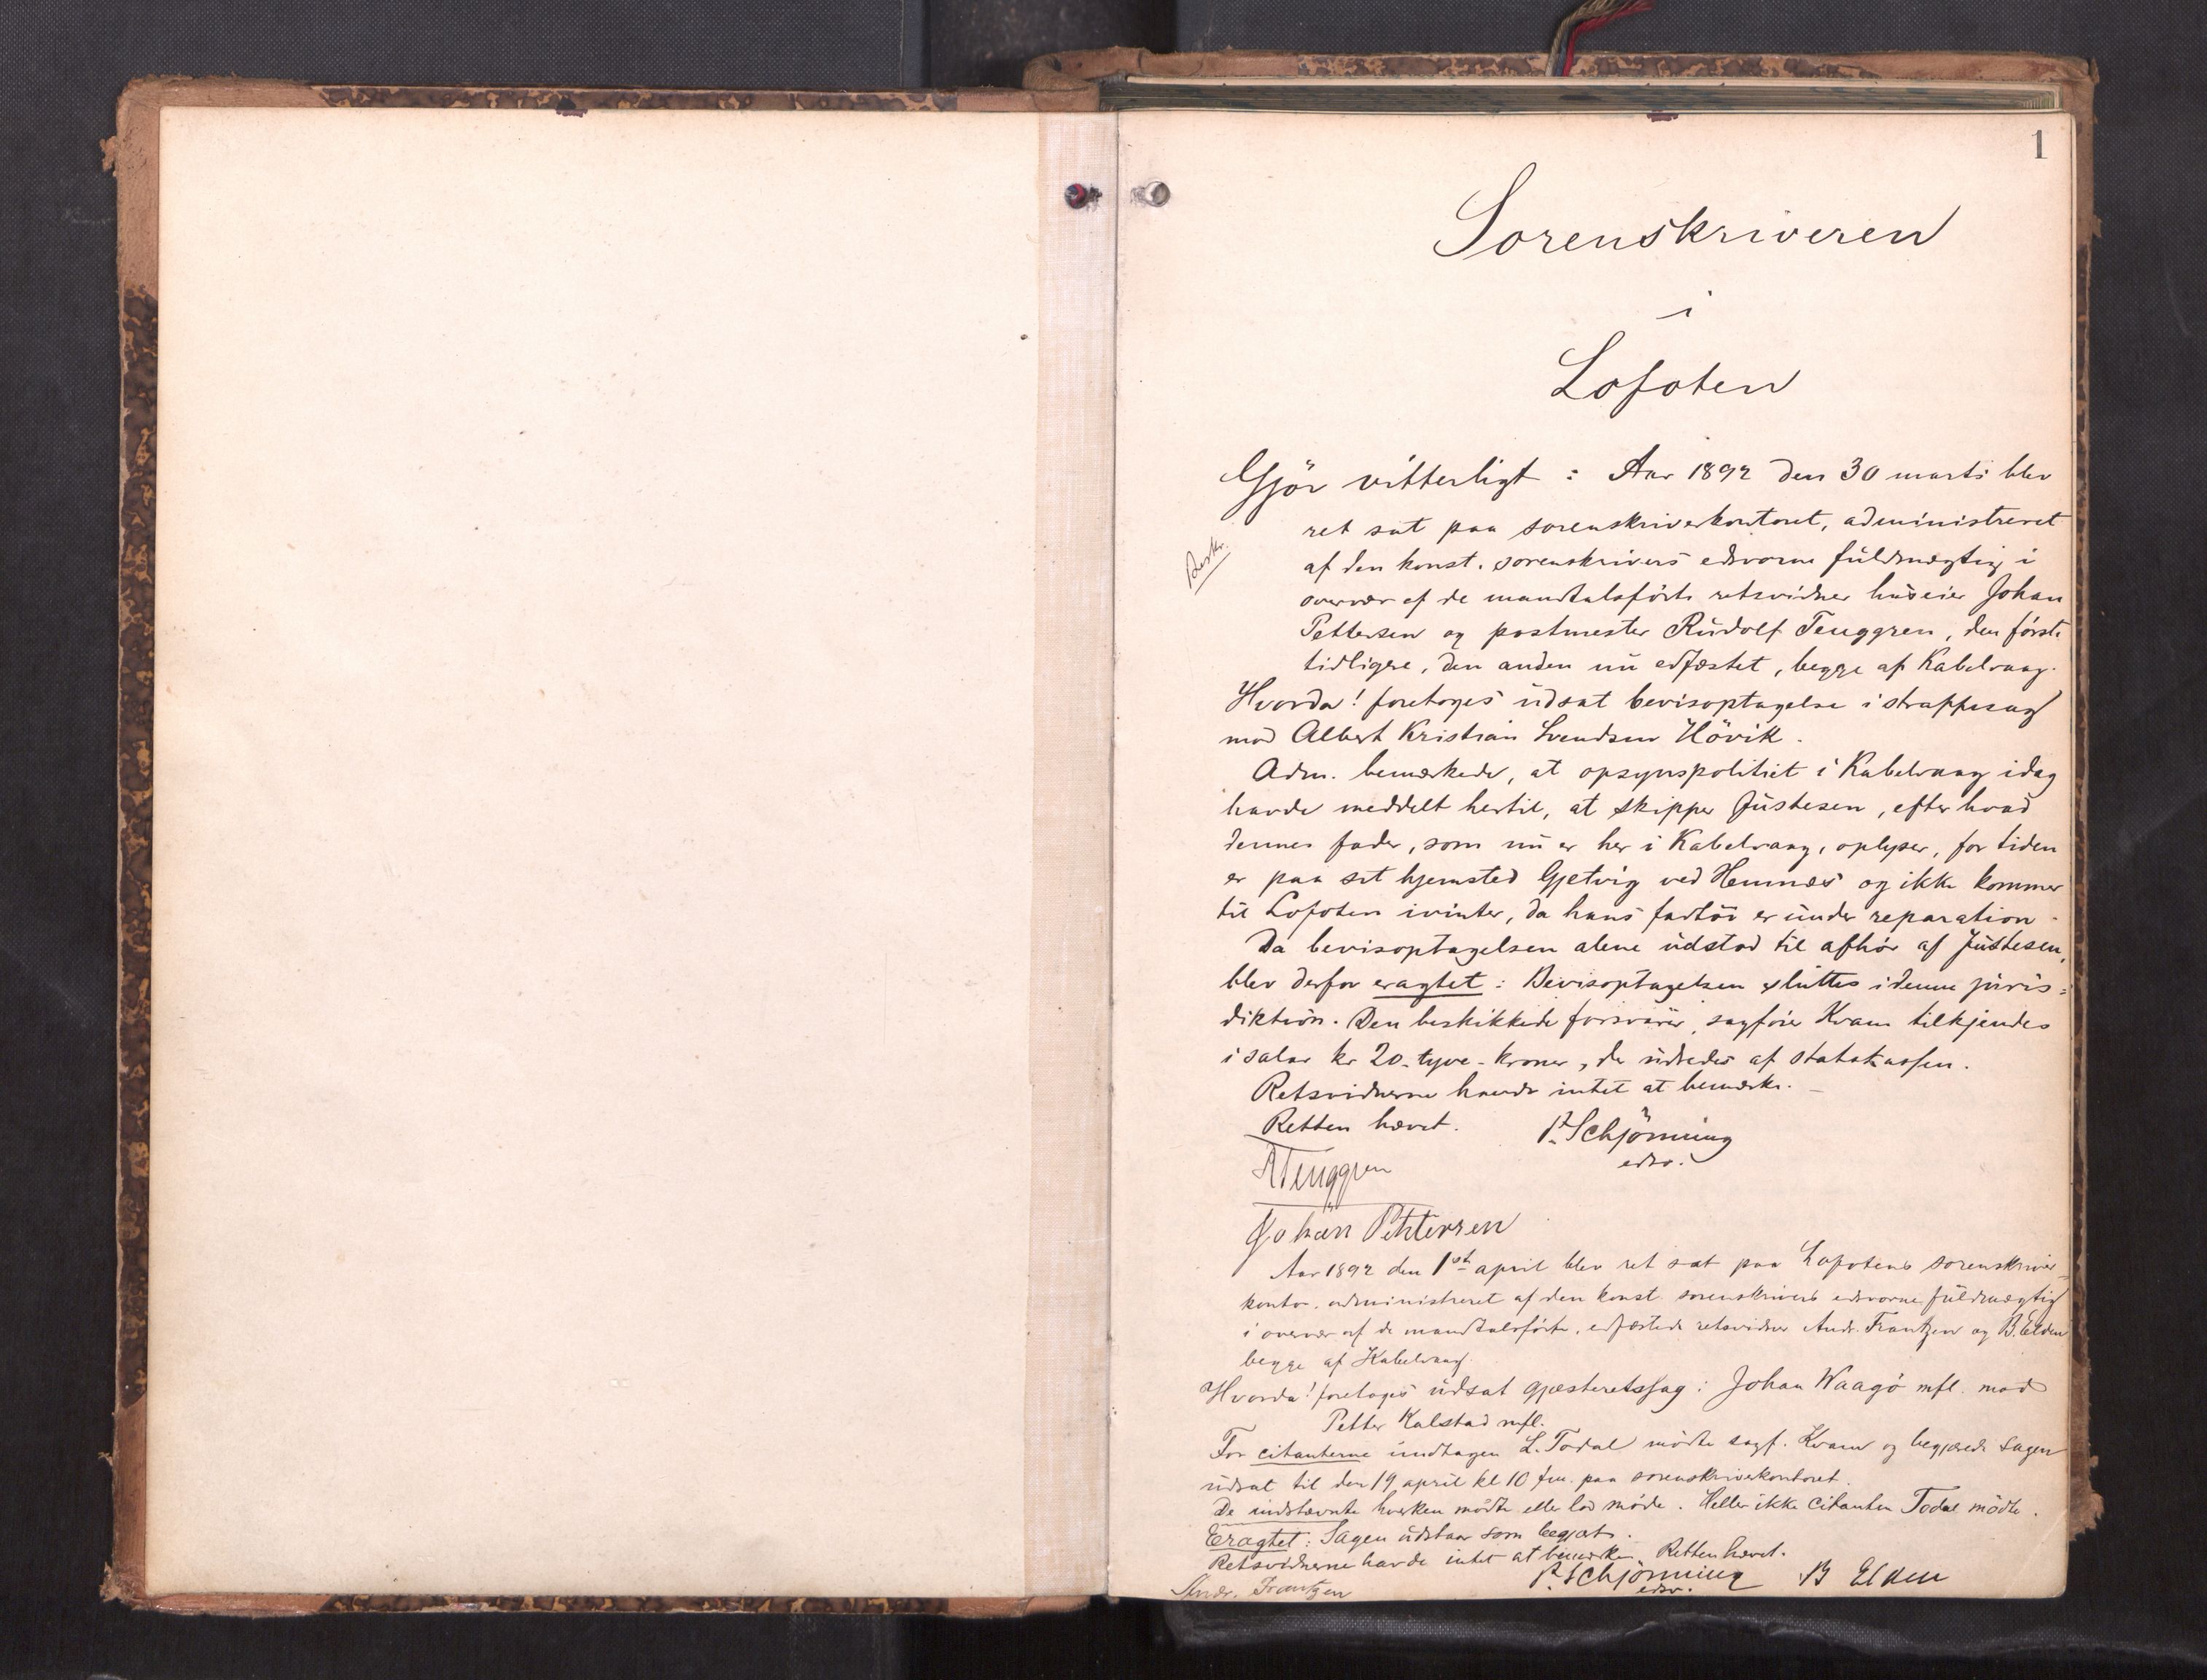 1
Sorenskriveren
i
Lofoten
Gjör vitterligt : Aar 1892 den 30 marts blev
ret sat paa sorenskriverkontoret, administreret
Beskr.
af den konst. sorenskrivers edsvorne fuldmægtig i
overvær af de mandtalsförte retsvidner huseier Johan
Pettersen og postmester Rudolf Tenggren, den förste
tidligere, den anden nu edfæstet, begge af Kabelvaag.
Hvorda! foretoges udsat bevisoptagelse i straffesag
mod Albert Kristian Svendsen Hövik.
Adm. bemærkede, at opsynspolitiet i Kabelvaag idag
havde meddelt hertil, at skipper Justesen, efter hvad
dennes fader, som nu er her i Kabelvaag, oplyser, for tiden
er paa sit hjemsted Gjetvig ved Hemnæs og ikke kommer
til Lofoten ivinter, da hans fartöi er under reparation.
Da bevisoptagelsen alene udstod til afhör af Justesen,
blev derfor eragtet : Bevisoptagelsen sluttes i denne juris=
diktion. Den beskikkede forsvarer, sagförer Kvam tilkjendes
i salær kr 20 - tyve - kroner, der udredes af statskassen.
Retsvidnerne havde intet at bemærke. –
Retten hævet. P. Schjönning
edsv.
R Tenggren
Johan Pehtersen
Aar 1892 den 1ste april blev ret sat paa Lofotens sorenskriver=
kontor, administreret af den konst. sorenskrivers edsvorne fuldmægtig
i overvær af de mandtalsförte, edfæstede retsvidner Andr. Frantzen og B. Elden
begge af Kabelvaag.
Hvorda! foretoges udsat gjæsteretssag : Johan Waagö mfl. mod
Petter Kalstad mfl.
For citanterne undtagen L. Todal mödte sagf. Kvam og begjærede sagen
udsat til den 19 april kl 10 fm. paa sorenskriverkontoret.
De indstævnte hverken mödte eller lod möde. Heller ikke citanten Todal mödte.
Eragtet : Sagen udstaar som begjæret.
Retsvidnerne havde intet at bemærke. Retten hævet.
P. Schjönning B Elden
edsv.
Andr. Frantzen